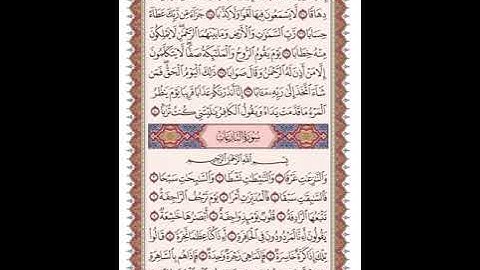 دِهَاقًا ۝ لَّا يَسْمَعُونَ فِيهَا لَغْوًا وَلَا كِذَّٰبًا ۝ جَزَآءً مِّن رَّبِّكَ عَطَآءً
حِسَابًا ۝ رَّبِّ ٱلسَّمَٰوَٰتِ وَٱلْأَرْضِ وَمَا بَيْنَهُمَا ٱلرَّحْمَٰنِ لَا يَمْلِكُونَ
مِنْهُ خِطَابًا ۝ يَوْمَ يَقُومُ ٱلرُّوحُ وَٱلْمَلَٰٓئِكَةُ صَفًّا لَّا يَتَكَلَّمُونَ
إِلَّا مَنْ أَذِنَ لَهُ ٱلرَّحْمَٰنُ وَقَالَ صَوَابًا ۝ ذَٰلِكَ ٱلْيَوْمُ ٱلْحَقُّ فَمَن
شَآءَ ٱتَّخَذَ إِلَىٰ رَبِّهِۦ مَـَٔابًا ۝ إِنَّآ أَنذَرْنَٰكُمْ عَذَابًا قَرِيبًا يَوْمَ يَنظُرُ
ٱلْمَرْءُ مَا قَدَّمَتْ يَدَاهُ وَيَقُولُ ٱلْكَافِرُ يَٰلَيْتَنِى كُنتُ تُرَٰبًۢا ۝
سُورَةُ النَّازِعَاتِ
بِسْمِ ٱللَّهِ ٱلرَّحْمَٰنِ ٱلرَّحِيمِ
وَٱلنَّٰزِعَٰتِ غَرْقًا ۝ وَٱلنَّٰشِطَٰتِ نَشْطًا ۝ وَٱلسَّٰبِحَٰتِ سَبْحًا ۝
فَٱلسَّٰبِقَٰتِ سَبْقًا ۝ فَٱلْمُدَبِّرَٰتِ أَمْرًا ۝ يَوْمَ تَرْجُفُ ٱلرَّاجِفَةُ ۝
تَتْبَعُهَا ٱلرَّادِفَةُ ۝ قُلُوبٌ يَوْمَئِذٍ وَاجِفَةٌ ۝ أَبْصَٰرُهَا خَٰشِعَةٌ ۝
يَقُولُونَ أَءِنَّا لَمَرْدُودُونَ فِى ٱلْحَافِرَةِ ۝ أَءِذَا كُنَّا عِظَٰمًا نَّخِرَةً ۝ قَالُوا۟
تِلْكَ إِذًا كَرَّةٌ خَاسِرَةٌ ۝ فَإِنَّمَا هِىَ زَجْرَةٌ وَٰحِدَةٌ ۝ فَإِذَا هُم بِٱلسَّاهِرَةِ